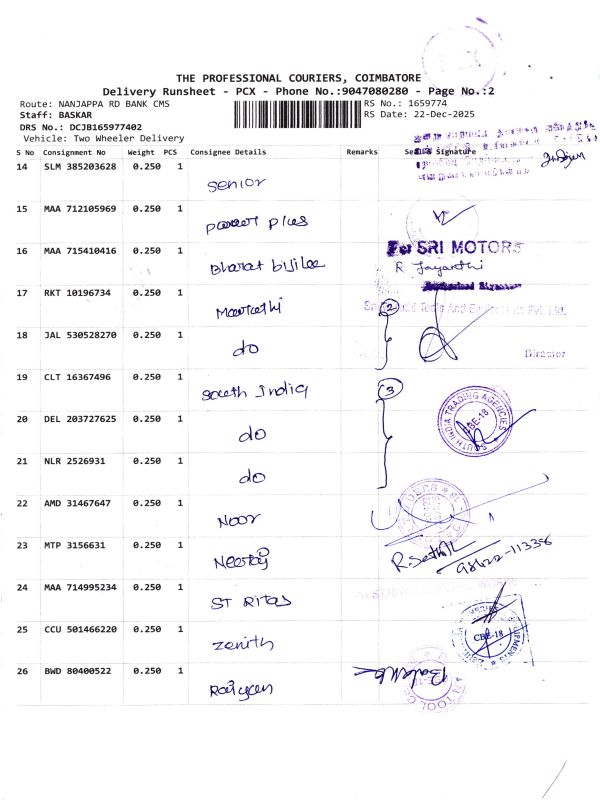 THE PROFESSIONAL COURIERS, COIMBATORE
Delivery Runsheet - PCX - Phone No.:9047080280 - Page No.:2
Route: NANJAPPA RD BANK CMS RS No.: 1659774
Staff: BASKAR RS Date: 22-Dec-2025
DRS No.: DCJB165977402
Vehicle: Two Wheeler Delivery
S No Consignment No Weight PCS Consignee Details Remarks Signature
14 SLM 385203628 0.250 1 Senior
15 MAA 712105969 0.250 1 plus
16 MAA 715410416 0.250 1 Bharat bijlee For SRI MOTORS
R Jayanthi
17 RKT 10196734 0.250 1 Marathi 2
18 JAL 530528270 0.250 1 do Director
19 CLT 16367496 0.250 1 South India 3
SOUTH INDIA TRADING AGENCIES CBE-18
20 DEL 203727625 0.250 1 do
21 NLR 2526931 0.250 1 do
22 AMD 31467647 0.250 1 Noor
23 MTP 3156631 0.250 1 Neeraj
24 MAA 714995234 0.250 1 ST Ritas
25 CCU 501466220 0.250 1 Zenith CBE-18
26 BWD 80400522 0.250 1